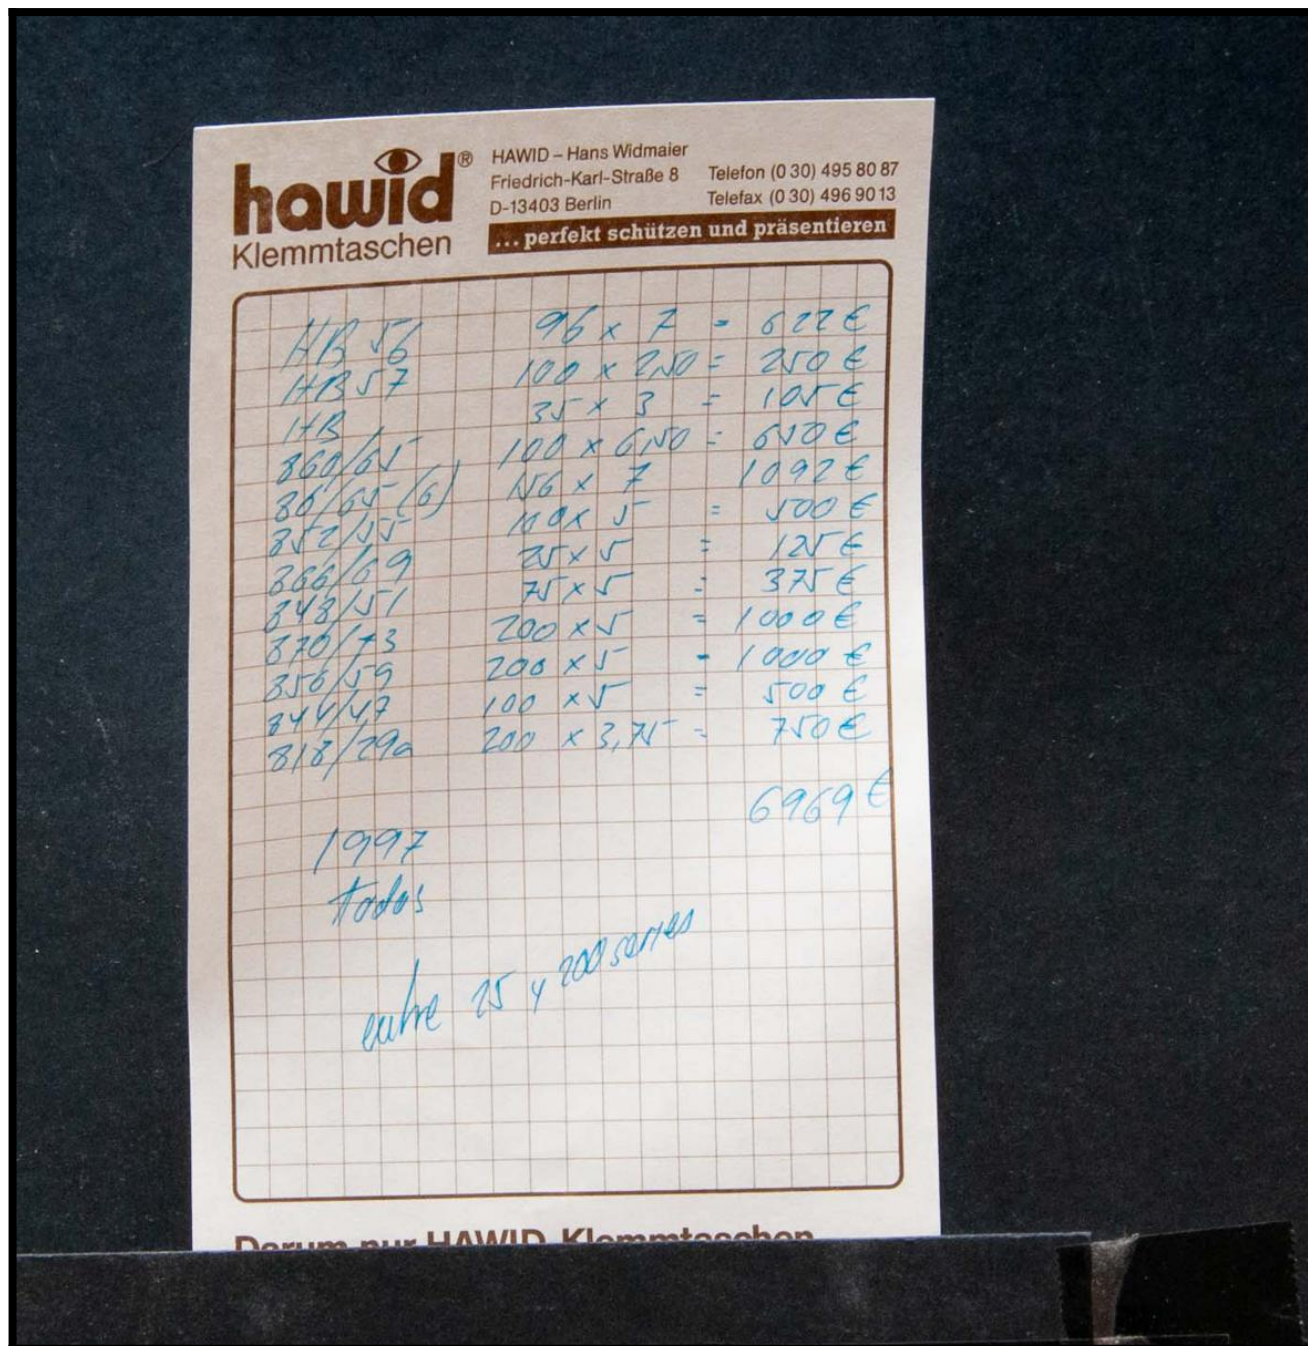 hawid®
Klemmtaschen
HAWID – Hans Widmaier
Friedrich-Karl-Straße 8
D-13403 Berlin
Telefon (0 30) 495 80 87
Telefax (0 30) 496 90 13
... perfekt schützen und präsentieren
HB 56 96 x 7 = 622 €
HB 57 100 x 2,50 = 250 €
HB 35 x 3 = 105 €
860/65 100 x 6,50 = 650 €
86/65 (6) 156 x 7 1092 €
852/55 100 x 5 = 500 €
866/69 25 x 5 = 125 €
848/51 75 x 5 = 375 €
870/73 200 x 5 = 1000 €
856/59 200 x 5 = 1000 €
844/47 100 x 5 = 500 €
818/29a 200 x 3,75 = 750 €
6969 €
1997
todos
entre 25 y 200 series
Darum nur HAWID-Klemmtaschen